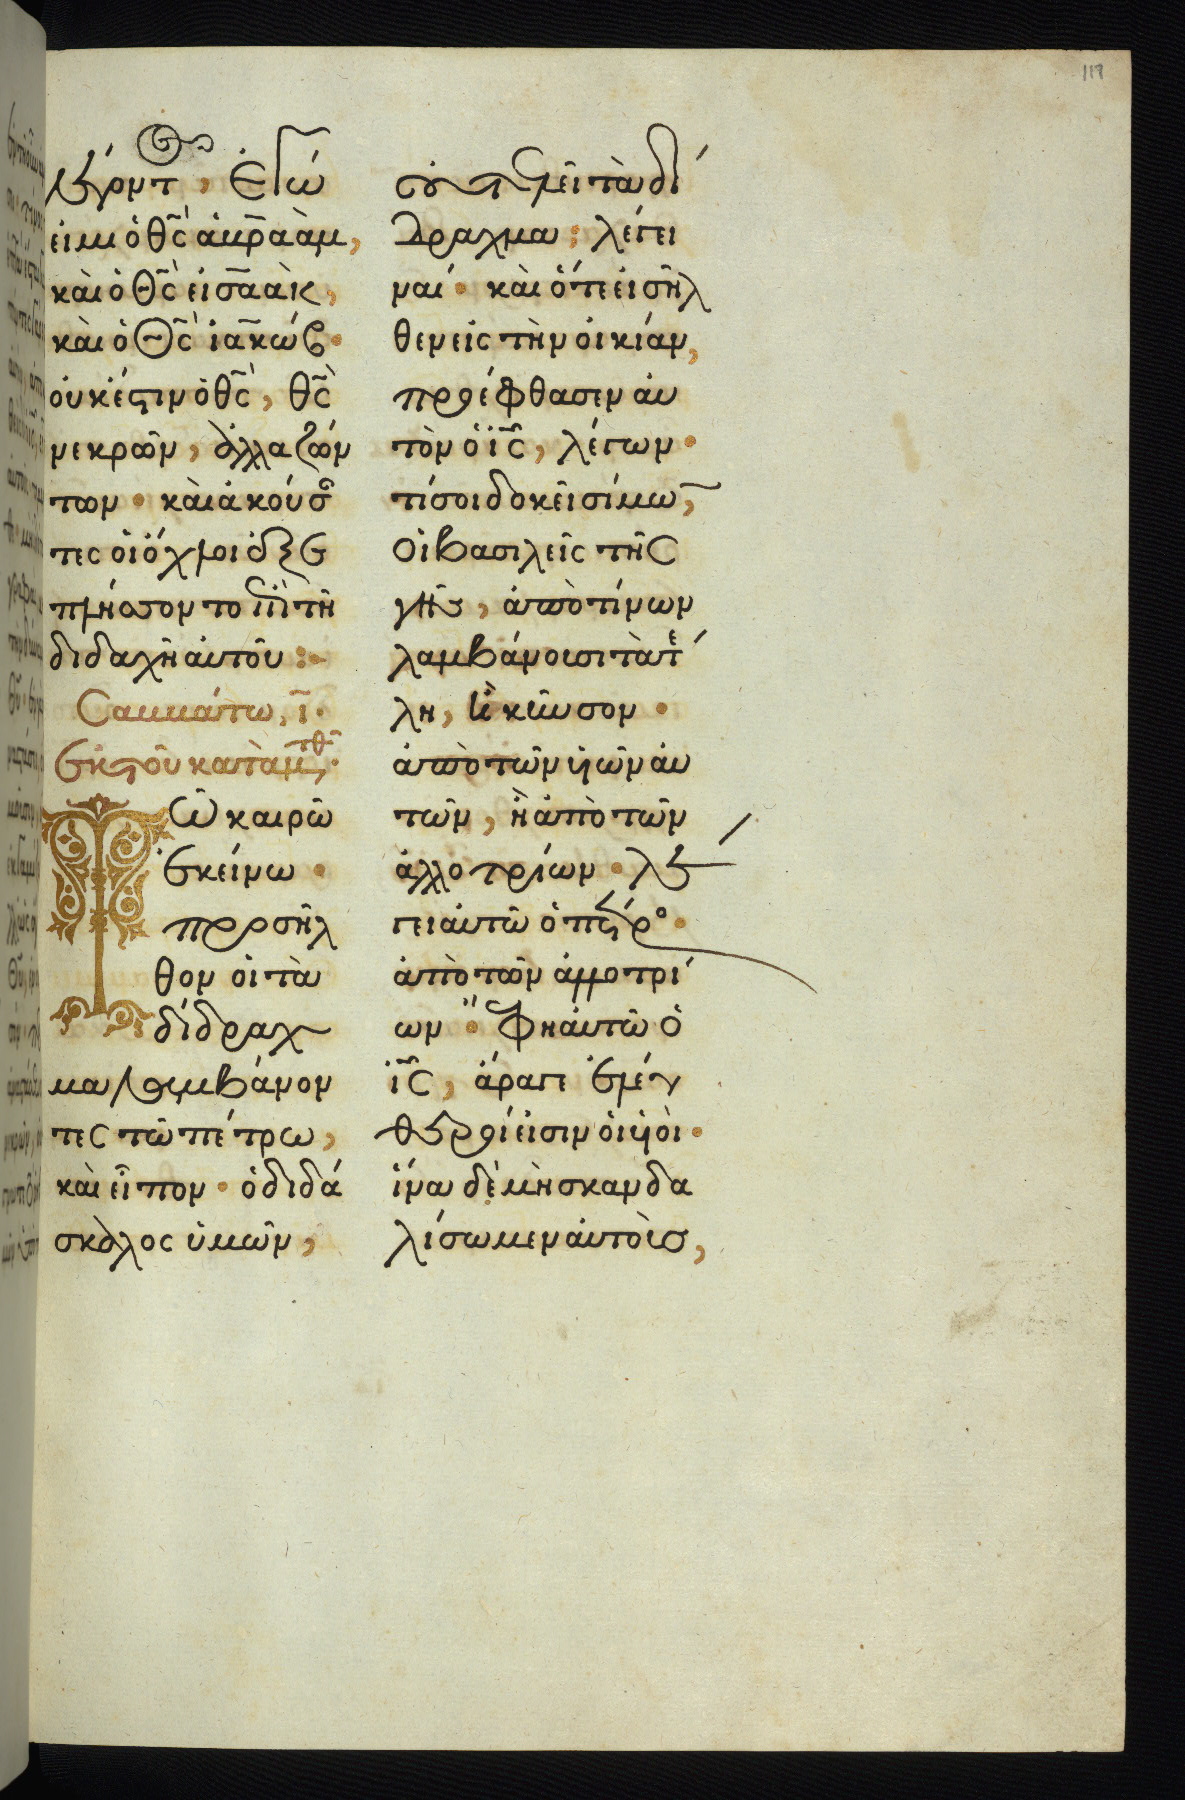 λέγοντος, Ἐγώ
εἰμι ὁ θ̅ς̅ ἀβραὰμ,
καὶ ὁ θ̅ς̅ ἰσαὰκ,
καὶ ὁ θ̅ς̅ ἰακώβ·
οὐκ ἔστιν ὁ θ̅ς̅, θ̅ς̅
νεκρῶν, ἀλλα ζών
των· καὶ ἀκούσαν
τες οἱ ὄχλοι ἐξε
πλήσσοντο ἐπὶ τῆ
διδαχῆ αὐτοῦ:
Σαββάτω, ι̅·
Ἐκ τοῦ κατὰ ματθ·
Τῶ καιρῶ
ἐκείνω·
προσῆλ
θον οἱ τὰ
δίδραχ
μα λαμβάνον
τες τῶ πέτρω,
καὶ εἶπον· ὁ διδά
σκαλος ὑμῶν,
οὐ τελεῖ τὰ δί
δραχμα; λέγει
ναί· καὶ ὅτε εἰσῆλ
θεν εἰς τὴν οἰκίαν,
προέφθασεν αὐ
τὸν ὁ ι̅ς̅, λέγων·
τί σοι δοκεῖ σίμων,
Οἱ βασιλεῖς τῆς
γῆς, ἀπὸ τίνων
λαμβάνουσι τὰ τέ
λη, ἢ κῆνσον·
ἀπὸ τῶν υἱῶν αὐ
τῶν, ἢ ἀπὸ τῶν
ἀλλοτρίων· λέ
γει αὐτῶ ὁ πέτρος·
ἀπὸ τῶν ἀλλοτρί
ων· Ἔφη αὐτῶ ὁ
ι̅ς̅, ἄραγε ἐλεύ
θεροί εἰσιν οἱ υἱοὶ·
ἵνα δὲ μὴ σκανδα
λίσωμεν αὐτοὺς,